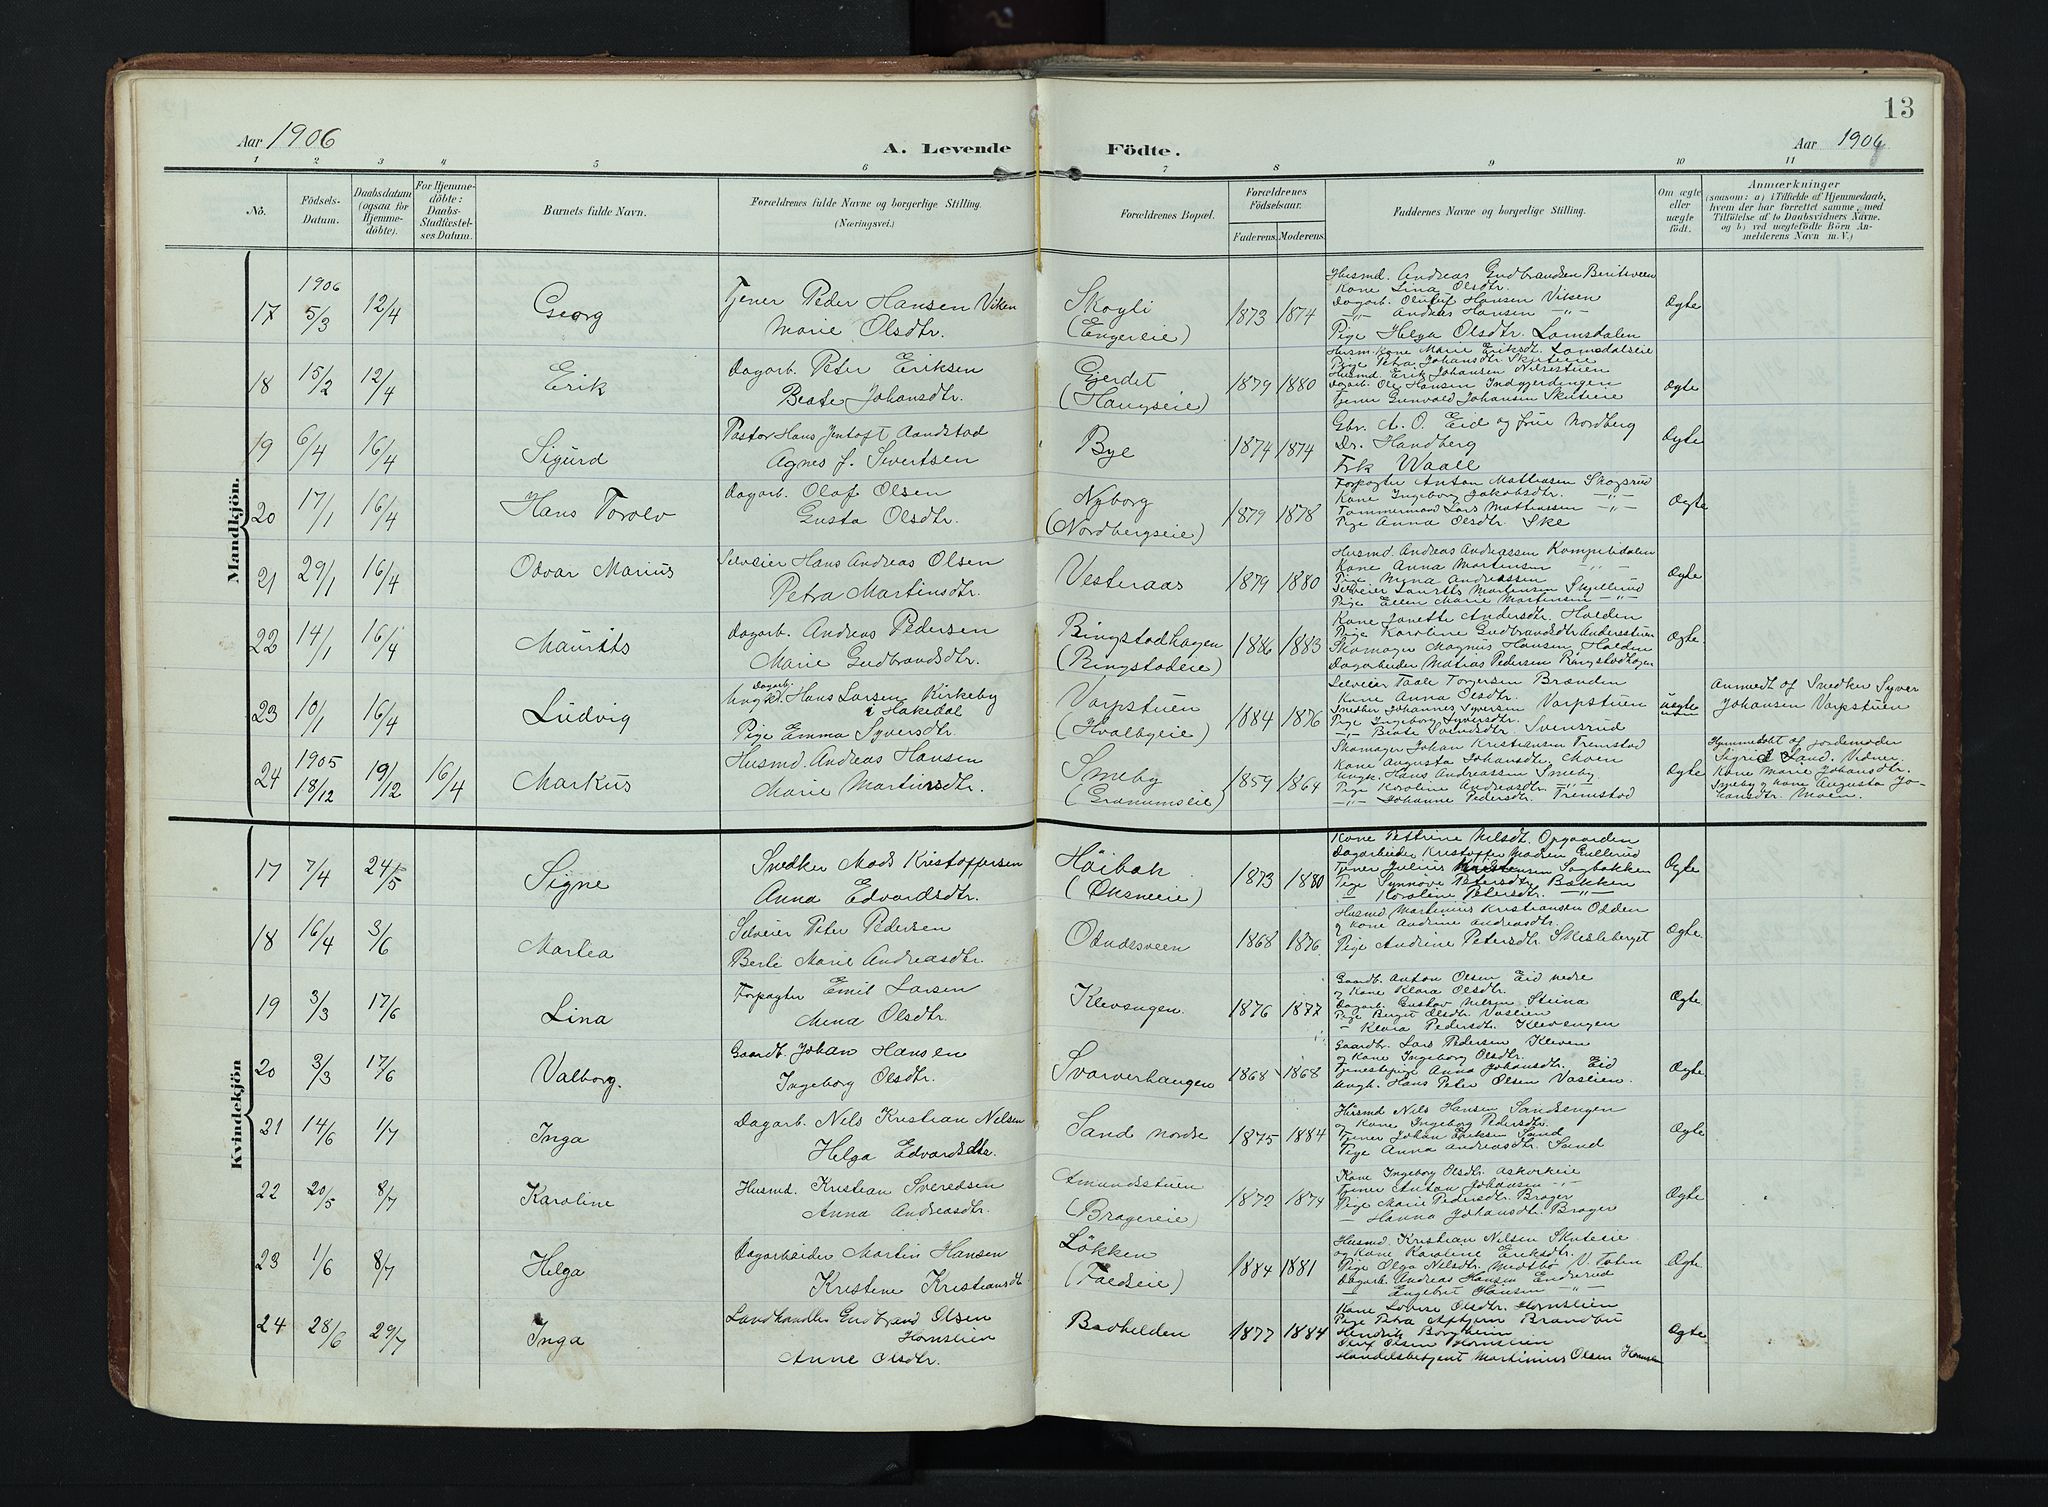 13
Aar 1906 A. Levende Födte. Aar 1906
1 2 3 4 5 6 7 8 9 10 11
No. Födsels-Datum. Daabsdatum (ogsaa for Hjemmedöbte). For Hjemmedöbte: Daabs-Stadfæstelses Datum. Barnets fulde Navn. Forældrenes fulde Navne og borgerlige Stilling. (Næringsvei.) Forældrenes Bopæl. Forældrenes Födselsaar. Faderens. Moderens. Faddernes Navne og borgerlige Stilling. Om ægte eller uægte födt. Anmærkninger (saasom: a) i Tilfælde af Hjemmedaab, hvem der har forrettet samme, med Tilföielse af to Daabsvidners Navne, og b) ved uægtefödte Börn Anmelderens Navn m. V.)
Mandkjön.
17 1906 5/3 12/4 Georg Tjener Peder Hansen Viken
Marie Olsdtr. Skogli (Engereie) 1873 1874
Husmd. Andreas Gudbrandsen Beritsveen
Kone Lina Olsdtr.
Dagarb. Hansen Viksen
-"- Andreas Hansen -"-
Pige Helga Olsdtr. Lomsdalen
Ægte
18 15/2 12/4 Erik Dagarb. Peter Eriksen
Beate Johansdtr. Gjerdet (Haugseie) 1879 1880
Husm. Kone Marie Eriksdt. Lomsdalseie
Pige Petra Johansdtr. Skuteeie
Husmd. Erik Johansen
Dagarb. Ole Hansen
Tjener Gunvald Johansen Skuteeie
Ægte
19 6/4 16/4 Sigurd Pastor Hans Jentoft Aandstad
Agnes J. Sivertsen Bye 1874 1874
Gbr. A. O. Eid og frue Nordberg
Dr. Handberg
Frk Waall
Ægte
20 17/1 16/4 Hans Torolv Dagarb. Olaf Olsen
Gusta Olsdtr. Nyborg (Nordbergseie) 1879 1878
Forpagter Anton Mathiasen Skogsrud
Kone Ingeborg Jakobsdtr. -"-
Tømmermand Lars Mathiassen -"-
Pige Anna Olsdtr. Ske
Ægte
21 29/1 16/4 Odvar Marius Selveier Hans Andreas Olsen
Petra Martinsdtr. Vesteraas 1879 1880
Husmd Andreas Andreassen
Kone Anna Mortensen -"-
Pige Mina Andreassen
Selveier Laurits Mortensen Skjellerud
Pige Ellen Marie Mortensen -"-
Ægte
22 14/1 16/4 Maurits Dagarb. Andreas Pedersen
Marie Gudbrandsdtr. Ringstadhagen (Ringstadeie) 1886 1883
Kone Janette Andersdtr. Halden
Pige Karoline Gudbrandsdtr. Andersstuen
Skomager Magnus Hansen Halden
Dagarbeider Matias Pedersen Ringstadhagen
Ægte
23 10/1 16/4 Ludvig Ungk. Dagarb. Hans Larsen Kirkeby
i Hakedal
Pige Emma Syversdtr. Varpstuen (Hvalbyeie) 1884 1876
Selveier Taale Torgersen Brænden
Kone Anna Olsdtr.
Snedker Johannes Syversen Varpstuen
Pige Ingeborg Syversdtr.
-"- Beate Svendsdtr. Svensrud
uægte
Anmeldt af Snedker Syver
Johansen Varpstuen
24 1905 18/12 19/12 16/4 Markus Husmd. Andreas Hansen
Marie Martinsdtr. Smeby (Granumseie) 1859 1864
Skomager Johan Kristiansen Tremstad
Kone Augusta Johansdtr. Moen
Ungk. Hans Andreassen Smeby
Pige Karoline Andreasdtr. -"-
-"- Johanne Pedersdtr. Tremstad
Ægte
Hjemmedøbt af jordemoder
Sigrid Sand. Vidner
Kone Marie Johansdtr.
Smeby, kone Augusta Jo-
hansdtr. Moen
Kvindekjön
17 7/4 24/5 Signe Snedker Mads Kristoffersen
Anna Edvardsdtr. Høibak (Øksneeie) 1873 1880
Kone Pettrine Nilsdt. Opgaarden
Dagarbeider Kristoffer Madsen Gullerud
Tjener Julius Kristensen Sagbakken
Pige Synnøve Petersdtr. Bækken
- Karoline Petersdtr. -"-
Ægte
18 16/4 3/6 Martea Selveier Peter Pedersen
Berte Marie Andreasdtr. Odnæsveen 1868 1876
Husmd Martinius Kristiansen Odden
og Kone Andrine Andreasdtr.
Pige Andrine Petersdtr. Skesleberget
Ægte.
19 3/3 17/6 Lina Forpagter Emil Larsen
Mina Olsdtr. Klevsengen. 1876 1877
Gaardb. Anton Olsen Eid nedre
og Kone Klara Olsdtr.
Dagarb. Gustav Nilsen Steina
Pige Birgit Olsdtr. Vaslien
- Klara Pedersdtr. Klevsengen
Ægte
20 3/3 17/6 Valborg. Gaardb. Johan Hansen
Ingeborg Olsdtr. Svarverhaugen 1868 1868
Gaardbr. Lars Pedersen Kleven
og Kone Ingeborg Olsdtr.
Tjenestepige Anna Johansdtr. Eid
Ungk. Hans Peter Olsen Vaslien.
Ægte
21 14/6 1/7 Inga Dagarb. Nils Kristian Nilsen
Helga Edvardsdtr. Sand nordre 1875 1884
Husmd Nils Hansen Sandsengen
og Kone Ingeborg Pedersdtr.
Tjener Johan Eriksen Sand
Pige Anna Andreasdtr. Sand
Ægte
22 20/5 8/7 Karoline Husmd. Kristian Sveredsen
Anna Andreasdtr. Amundsstuen (Bragereie) 1872 1874
Kone Ingeborg Olsdtr.
Tjener Anton Johansen -"-
Pige Marie Pedersdtr. Brager
- Hanna Johansdtr. Brager
Ægte
23 1/6 8/7 Helga Dagarbeider Martin Hansen
Kristine Kristiansdtr Løkken (Faldseie) 1884 1881
Husmd. Kristian Nilsen Skuteeie
og Kone Karoline Eriksdtr.
Pige Olga Nilsdtr. Medtbø V. Toten
Dagarb. Andreas Hansen Enderud
- Engebrit Hansen -"-
Ægte
24 28/6 29/7 Inga Landhandler Gudbrand Olsen
Hornslien
Anne Olsdtr. 1877 1884
Kone Lovise Olsdtr. Hornslien
Pige Petra Brandbu
Hendrik Borgheim
Olaf Olsen Hornslien
Handelsbetjent Martinius Olsen Hornslien
Ægte